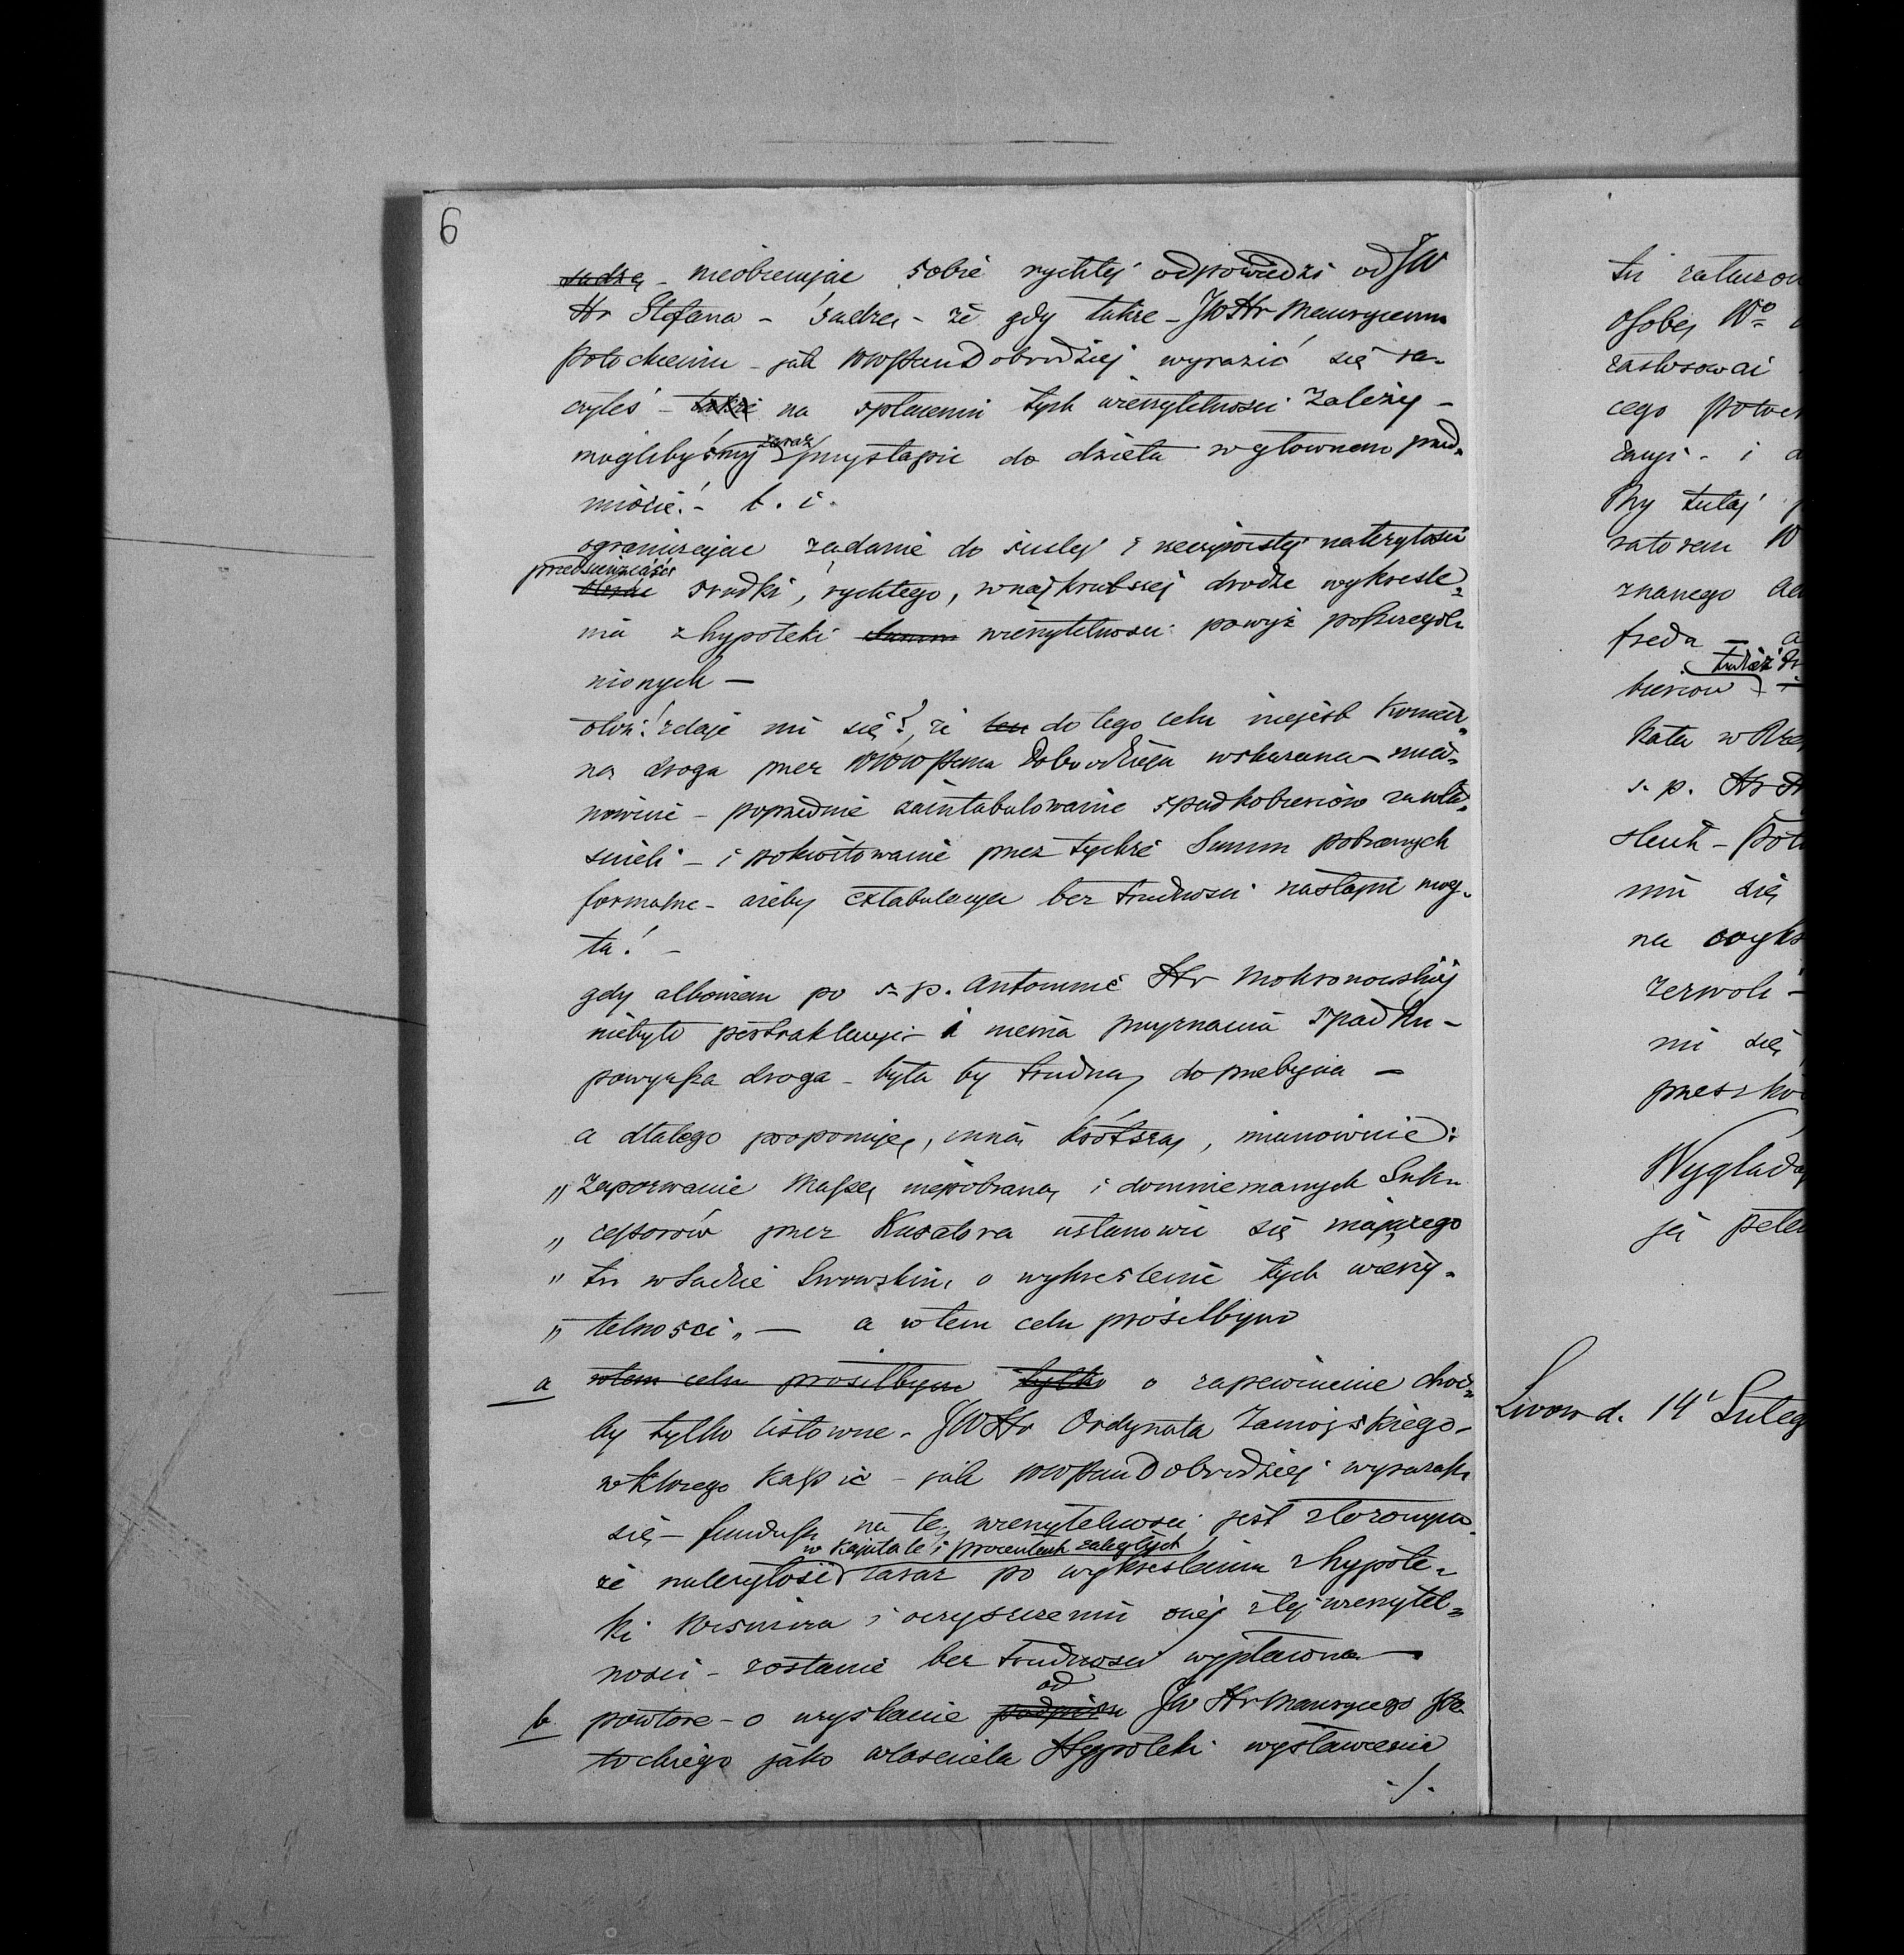 6
sadzę - nieobiecując sobie rychłej odpowiedzi od JW
Hr Stefana - sądzę - że gdy także - JWHr Maurycemu
Potockiemu - jak WWPan Dobrodziej wyrazić się ra-
czyłeś - także na spłaceniu tych wierzytelności zależy -
moglibyśmy zaraz przystąpić do dzieła w głównem przed-
miocie! - t. i.
ograniczając żądanie do ścisłej i rzeczywistej należytości
przedsięwziąść
środki, rychłego, w najkrótszej drodze wykreśle-
nia z hypoteki wierzytelności powyż poszczegól-
nionych —
otóż! zdaje mi się?, że ten do tego celu niejest koniecz-
ną droga przez WWPana Dobrodzieja wskazana - mia-
nowicie - poprzednie zaintabulowanie spadkobierców za wła-
ścicieli - i pokwitowanie przez tychże Summ pobranych
formalne - ażeby extabulacya bez trudności nastąpić mog-
ła! -
gdy albowiem po s. p. Antoninie Hr Mokronowskiej
niebyło pertraktacyi - i niema przyznania spadku -
powyższa droga - była by trudną do przebycia —
a dlatego proponuję, inną krótszą, mianowicie:
„ Zapozwanie Massę nieobraną i domniemanych Suk-
„ cessorów przez Kuratora ustanowić się mającego
„ tu w Sądzie Lwowskim, o wykreślenie tych wierzy-
„ telności. — a w tem celu prosiłbym
a w tem celu prosiłbym tylko o zapewnienie choć-
by tylko listowne - JWHr Ordynata Zamojskiego -
w którego kassie - jak WWPan Dobrodziej wyraża
się - fundusz na tę wierzytelność jest złożonym
w kapitale i procentach zaległych
że należytość zaraz po wykreśleniu z hypote-
ki i oczyszczeniu onej z tej wierzytel-
ności - zostanie bez trudności wypłacona —
od
b powtóre - o uzyskanie podpisu JW Hr Maurycego Po-
tockiego jako właściciela Hypoteki wystawienia
./.
tu
osobę Wo
zastosować
cego
i a
by tutaj
ratorem W
znanego
freda — a
tudzież
s. p. Hr
mu się
na wyk
zezwoli -
mi się
przeszko
ją
Lwow d. 14 Luteg